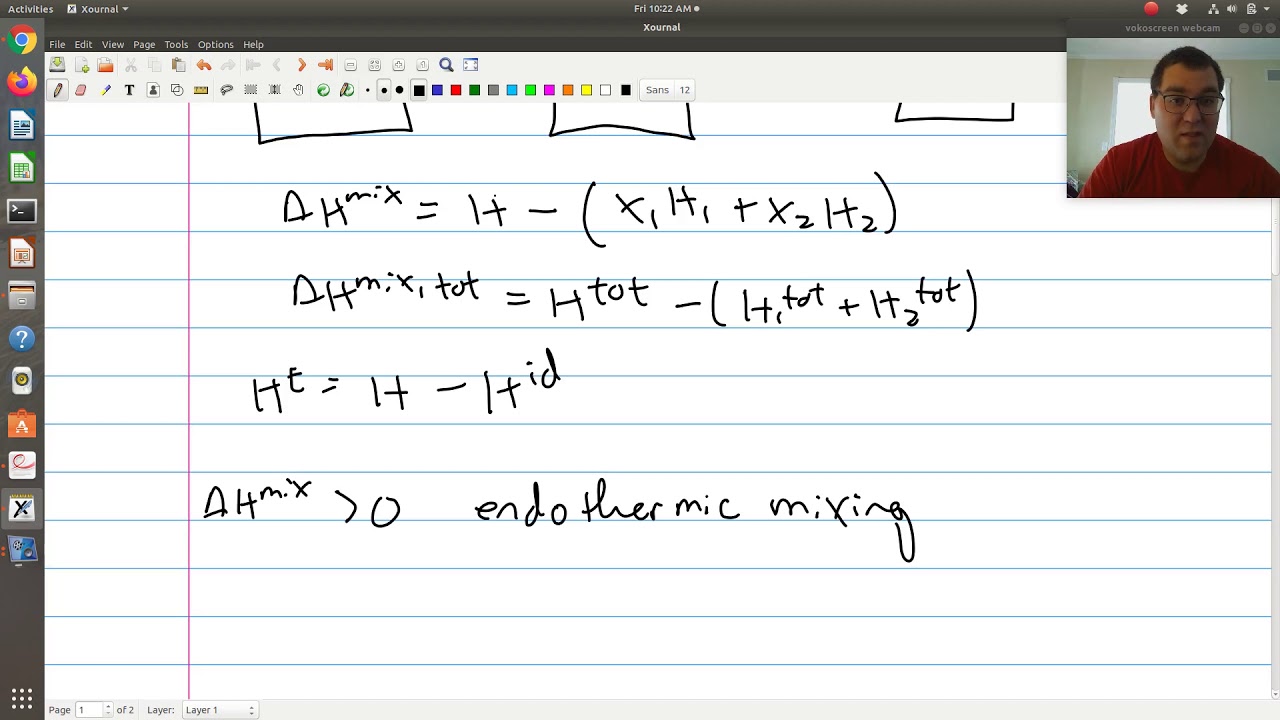 Activities Xournal Fri 10:22 AM
Xournal
vokoscreen webcam
File Edit View Page Tools Options Help
Sans 12
ΔH^mix = H - (x₁H₁ + x₂H₂)
ΔH^mix,tot = H^tot - (H₁^tot + H₂^tot)
H^E = H - H^id
ΔH^mix > 0 endothermic mixing
Page 1 of 2 Layer: Layer 1